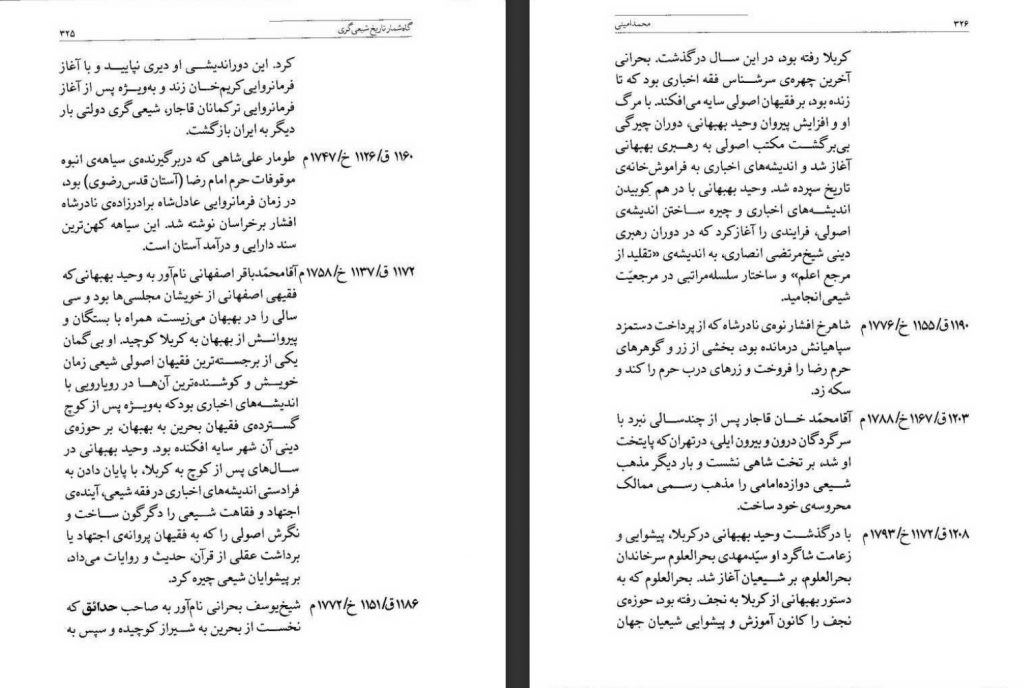 گاه‌شمار تاریخ شیعی‌گری
۳۲۵
کرد. این دوراندیشی او دیری نپایید و با آغاز
فرمانروایی کریم‌خان زند و به‌ویژه پس از آغاز
فرمانروایی ترکمانان قاجار، شیعی‌گری دولتی بار
دیگر به ایران بازگشت.
۱۱۶۰ ق/۱۱۲۶ خ/۱۷۴۷م طومار علی‌شاهی که دربرگیرنده‌ی سیاهه‌ی انبوه
موقوفات حرم امام رضا (آستان قدس‌رضوی) بود،
در زمان فرمانروایی عادل‌شاه برادرزاده‌ی نادرشاه
افشار برخراسان نوشته شد. این سیاهه کهن‌ترین
سند دارایی و درآمد آستان است.
۱۱۷۲ ق/۱۱۳۷ خ/۱۷۵۸م آقامحمّدباقر اصفهانی نام‌آور به وحید بهبهانی‌که
فقیهی اصفهانی از خویشان مجلسی‌ها بود و سی
سالی را در بهبهان می‌زیست، همراه با بستگان و
پیروانش از بهبهان به کربلا کوچید. او بی‌گمان
یکی از برجسته‌ترین فقیهان اصولی شیعی زمان
خویش و کوشنده‌ترین آن‌ها در رویارویی با
اندیشه‌های اخباری بودکه به‌ویژه پس از کوچ
گسترده‌ی فقیهان بحرین به بهبهان، بر حوزه‌ی
دینی آن شهر سایه افکنده بود. وحید بهبهانی در
سال‌های پس از کوچ به کربلا، با پایان دادن به
فرادستی اندیشه‌های اخباری در فقه شیعی، آینده‌ی
اجتهاد و فقاهت شیعی را دگرگون ساخت و
نگرش اصولی را که به فقیهان پروانه‌ی اجتهاد یا
برداشت عقلی از قرآن، حدیث و روایات می‌داد،
بر پیشوایان شیعی چیره کرد.
۱۱۸۶ق/۱۱۵۱ خ/۱۷۷۲م شیخ‌یوسف بحرانی نام‌آور به صاحب حدائق که
نخست از بحرین به شیراز کوچیده و سپس به
۳۲۶
محمد امینی
کربلا رفته بود، در این سال درگذشت. بحرانی
آخرین چهره‌ی سرشناس فقه اخباری بود که تا
زنده بود، بر فقیهان اصولی سایه می‌افکند. با مرگ
او و افزایش پیروان وحید بهبهانی، دوران چیرگی
بی‌برگشت مکتب اصولی به رهبری بهبهانی
آغاز شد و اندیشه‌های اخباری به فراموش‌خانه‌ی
تاریخ سپرده شد. وحید بهبهانی با در هم کوبیدن
اندیشه‌های اخباری و چیره ساختن اندیشه‌ی
اصولی، فرایندی را آغازکرد که در دوران رهبری
دینی شیخ‌مرتضی انصاری، به اندیشه‌ی «تقلید از
مرجع اعلم» و ساختار سلسله‌مراتبی در مرجعیّت
شیعی‌انجامید.
۱۱۹۰ق/۱۱۵۵ خ/۱۷۷۶م شاهرخ افشار نوه‌ی نادرشاه که از پرداخت دستمزد
سپاهیانش درمانده بود، بخشی از زر و گوهرهای
حرم رضا را فروخت و زرهای درب حرم را کند و
سکه زد.
۱۲۰۳ق/۱۱۶۷خ/۱۷۸۸م آقامحمّد خان قاجار پس از چندسالی نبرد با
سرگردگان درون و بیرون ایلی، درتهران‌که پایتخت
او شد، بر تخت شاهی نشست و بار دیگر مذهب
شیعی دوازده‌امامی را مذهب رسمی ممالک
محروسه‌ی خود ساخت.
۱۲۰۸ق/۱۱۷۲خ/۱۷۹۳م با درگذشت وحید بهبهانی درکربلا، پیشوایی و
زعامت شاگرد او سیّدمهدی بحرالعلوم سرخاندان
بحرالعلوم، بر شیعیان آغاز شد. بحرالعلوم که به
دستور بهبهانی از کربلا به نجف رفته بود، حوزه‌ی
نجف را کانون آموزش و پیشوایی شیعیان جهان